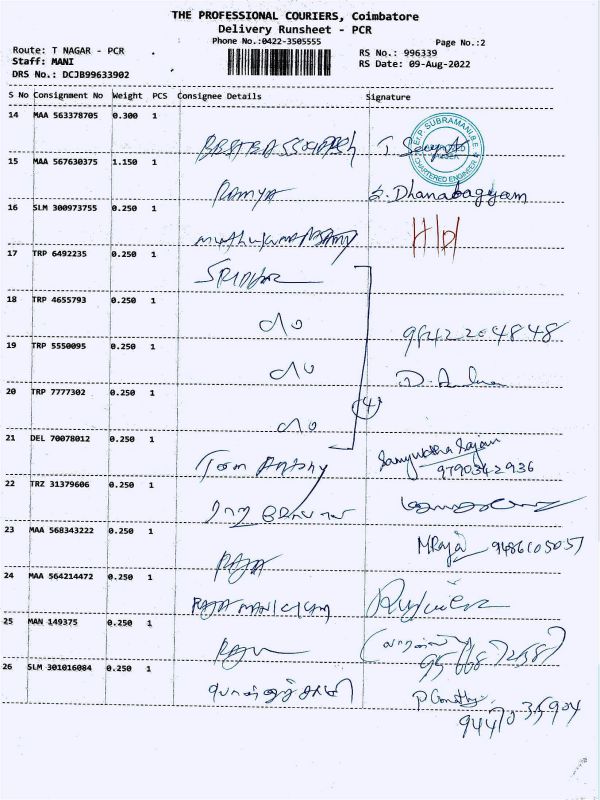 THE PROFESSIONAL COURIERS, Coimbatore
Delivery Runsheet - PCR
Phone No.:0422-3505555
Page No.:2
Route: T NAGAR - PCR
RS No.: 996339
Staff: MANI
RS Date: 09-Aug-2022
DRS No.: DCJB99633902
S No Consignment No Weight PCS Consignee Details Signature
14 MAA 563378705 0.300 1
P. SUBRAMANI B.E
CHARTERED ENGINEER
15 MAA 567630375 1.150 1
Ramya S. Dhanabagyam
16 SLM 300973755 0.250 1
muthukumarasamy H/d
17 TRP 6492235 0.250 1
SRIDHAR
18 TRP 4655793 0.250 1
do 9842204848
19 TRP 5550095 0.250 1
do
20 TRP 7777302 0.250 1
do (4)
21 DEL 70078012 0.250 1
Tom Antony Samyuktha Rajan
9790342936
22 TRZ 31379606 0.250 1
23 MAA 568343222 0.250 1
RAJA M Raja 9486105057
24 MAA 564214472 0.250 1
RAJA MANICKAM
25 MAN 149375 0.250 1
RAJU
26 SLM 301016084 0.250 1
9447035904